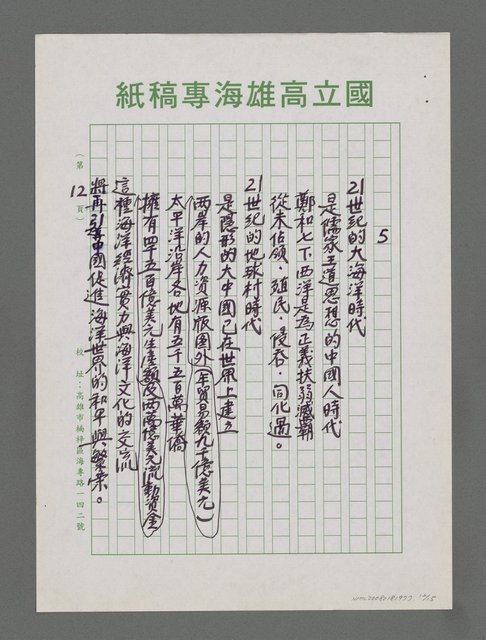 國立高雄海專稿紙
5
21世紀的大海洋時代
是儒家王道思想的中國人時代
鄭和七下西洋是為正義扶弱滅霸
從未佔領．殖民．侵吞．同化過。
21世紀的地球村時代
是隱形的大中國已在世界上建立
兩岸的人力資源版圖外（年貿易額九千億美元）
太平洋沿岸各地有五千五百萬華僑
擁有四千五百億美元生產額及兩萬億美元流動資金
這種海洋經濟實力與海洋文化的交流
將再引導中國促進海洋世界的和平與繁榮。
（第12頁）
校址：高雄市楠梓區海專路一四二號